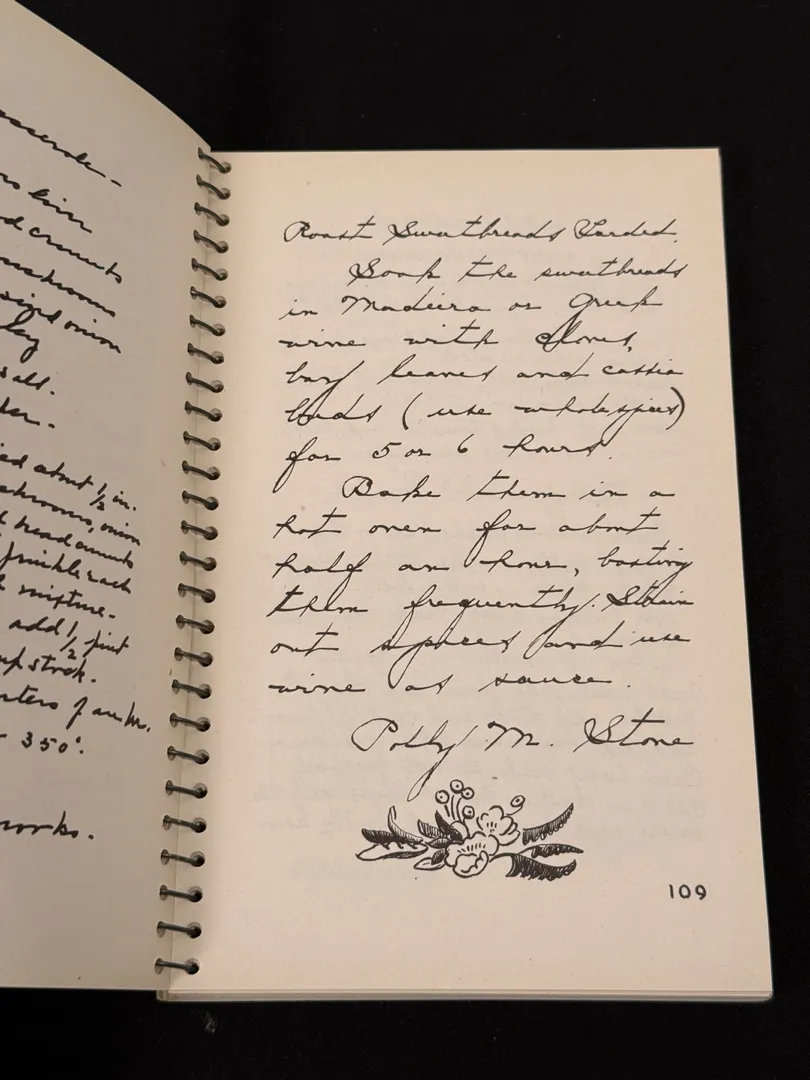 asserole -
crumbs
mushrooms
onion
salt.
about 1/2 in.
mushrooms, onion
bread crumbs
sprinkle each
mixture.
add 1/2 pint
350°.
Roast Sweetbreads Larded.
Soak the sweetbreads
in Madeira or Greek
wine with cloves,
bay leaves and cassia
buds (use whole spices)
for 5 or 6 hours.
Bake them in a
hot oven for about
half an hour, basting
them frequently. Strain
out spices and use
wine as sauce.
Polly M. Stone
109